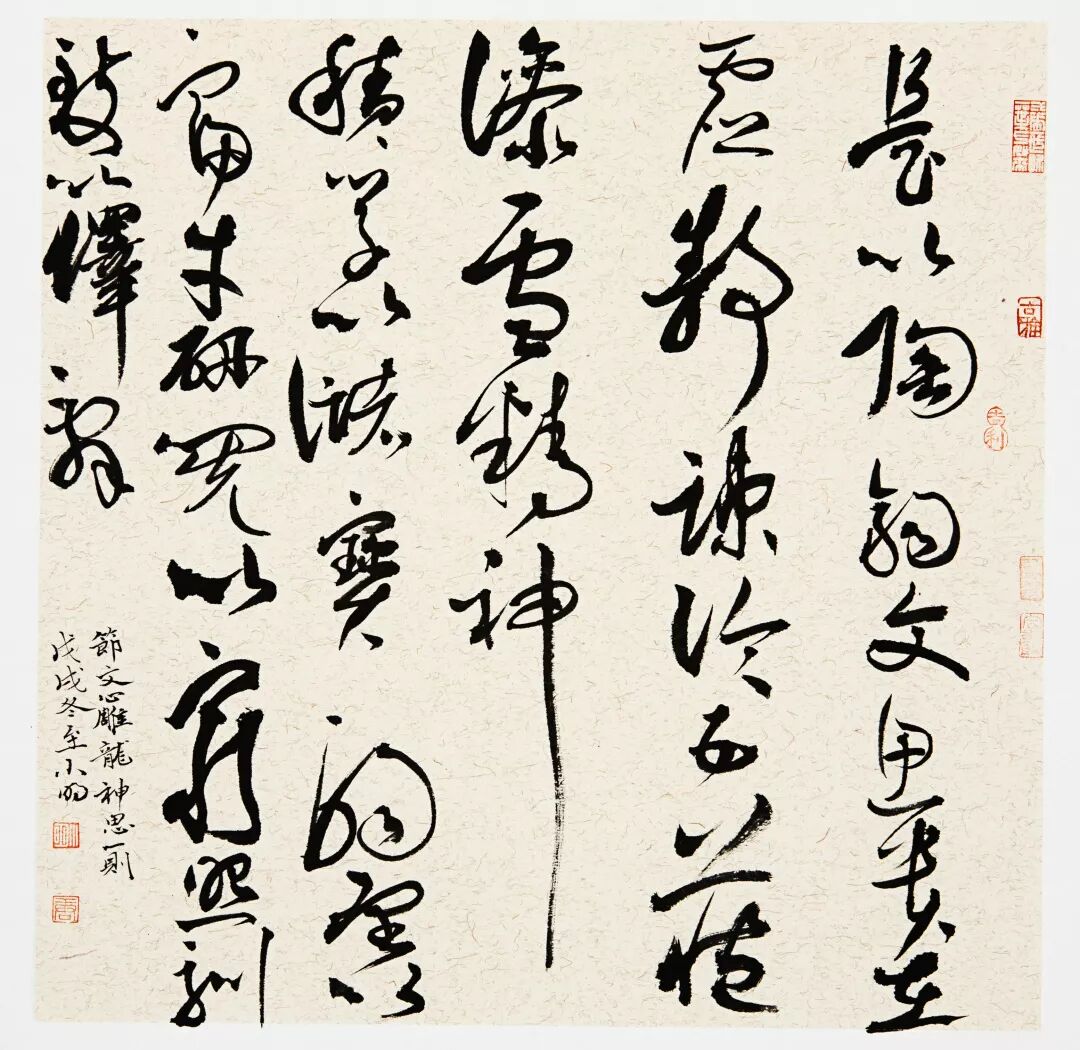 是以陶鈞文思貴在
虛靜疎瀹五藏
澡雪精神
積學以儲寶酌理以
富才研閱以窮照馴
致以繹辭
節文心雕龍神思一則
戊戌冬至小明